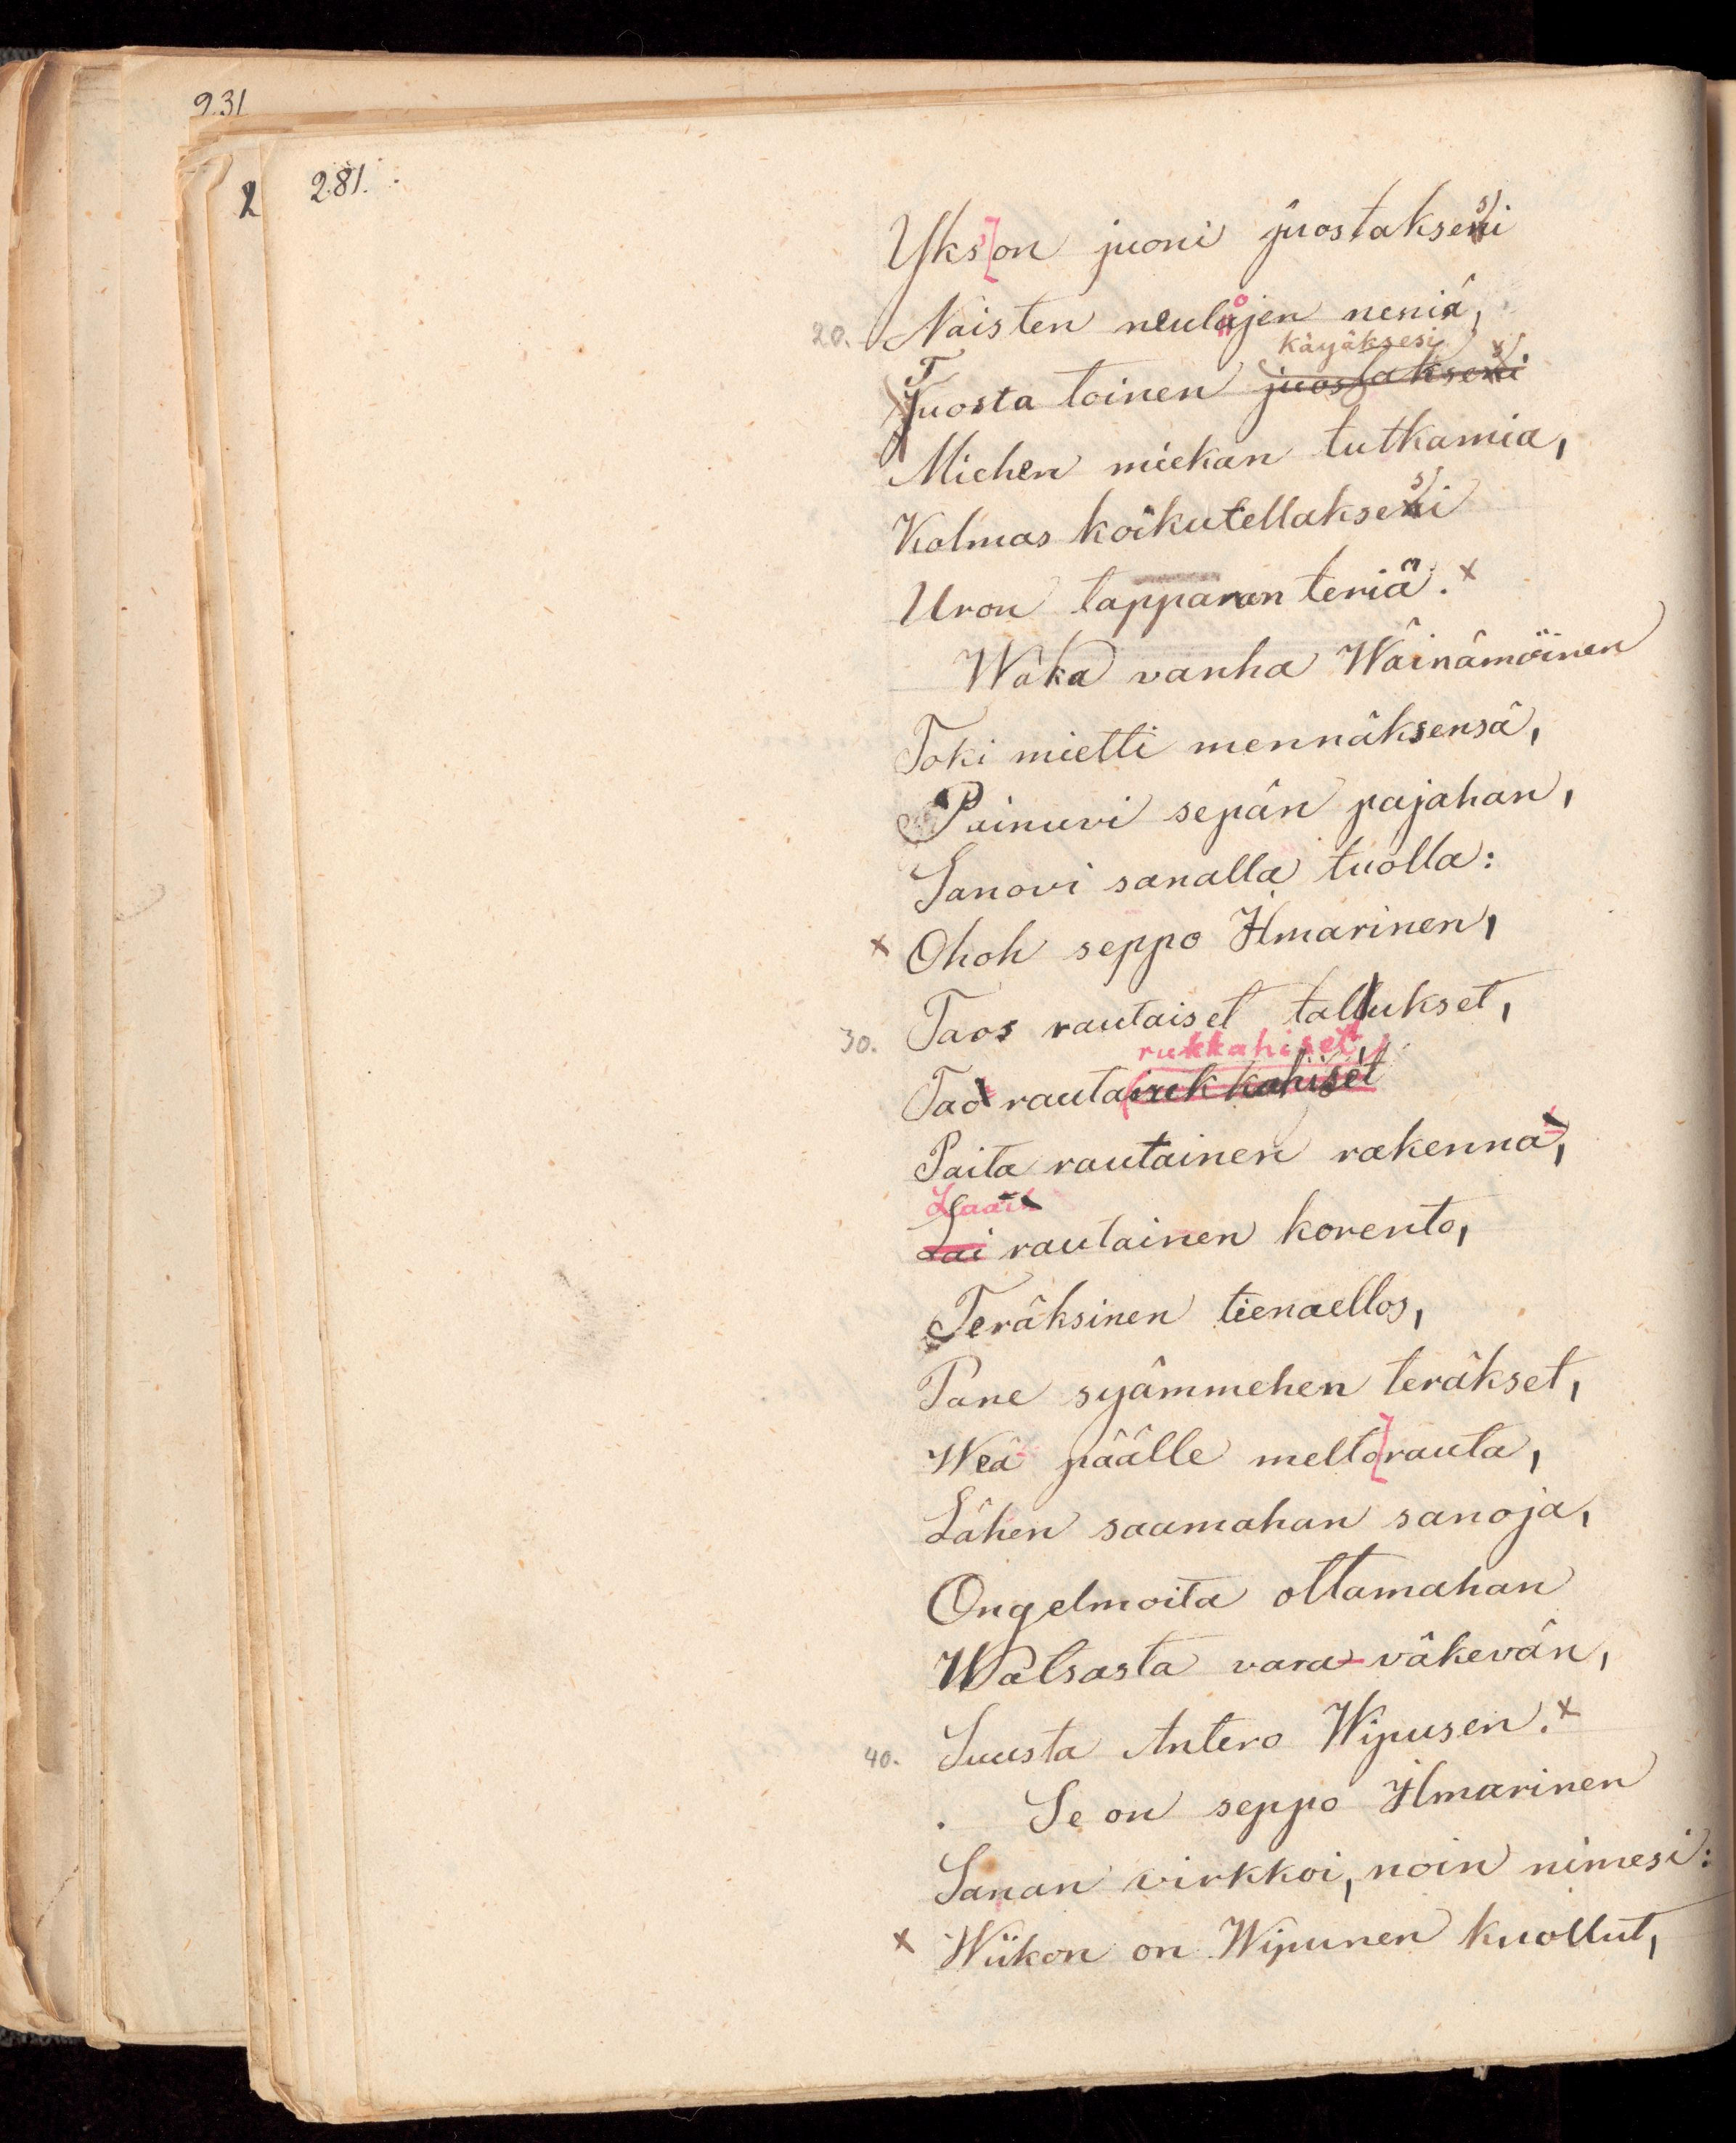 231
281.
Yks on juoni juostaksesi
20. Naisten neulojen neniä,
käyäksesi
Tuosta toinen juostaksesi
Miehen miekan tutkamia,
Kolmas koikutellaksesi
Uron tapparan teriä. x
Waka vanha Wäinämöinen
Toki mietti mennäksensä,
Painuvi sepän pajahan,
Sanovi sanalla tuolla:
x Ohoh seppo Ilmarinen,
30. Taos rautaiset tallukset,
rukkahiset,
Tao rauta rukkahiset
Paita rautainen rakenna,
Laai
Lai rautainen korento,
Teräksinen tienaellos,
Pane syämmehen teräkset,
Weä päälle melto rauta,
Lähen saamahan sanoja,
Ongelmoita ottamahan
Watsasta vara-väkevän,
40. Suusta Antero Wipusen. x
. Se on seppo Ilmarinen
Sanan virkkoi, noin nimesi:
x Wiikon on Wipunen kuollut,